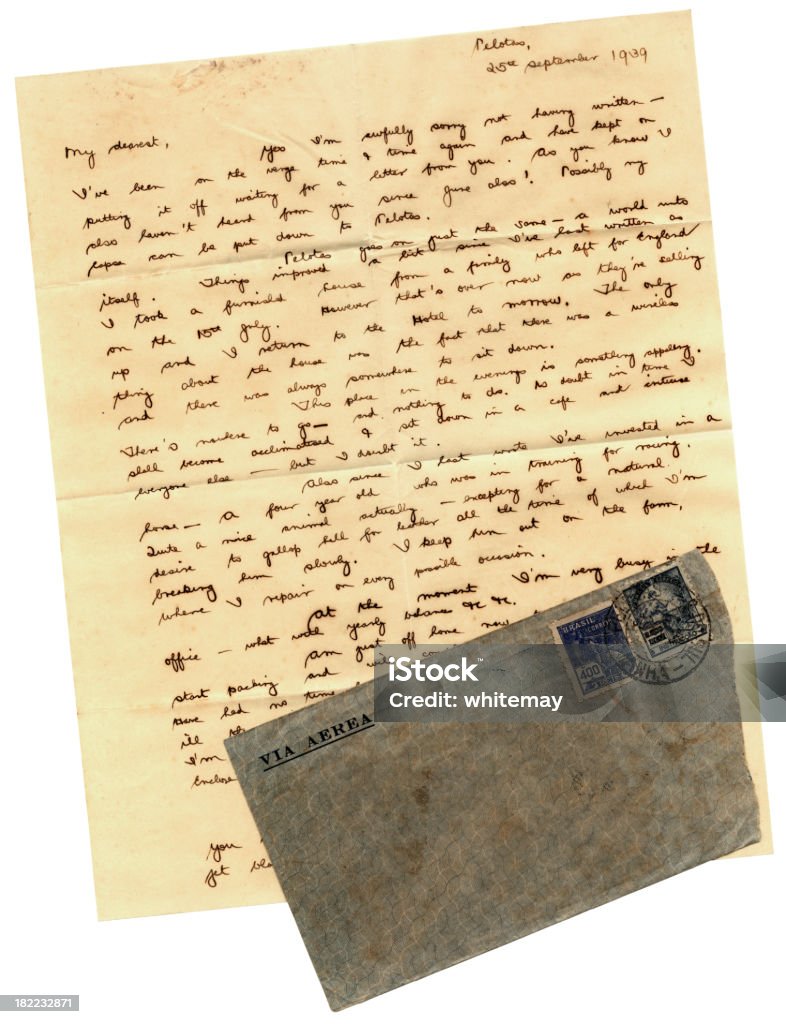 Pelotas,
25th September 1939
My dearest,
Yes I'm awfully sorry not having written –
I've been on the verge time & time again and have kept on
putting it off waiting for a letter from you. As you know I
also haven't heard from you since June also! Possibly my
lapse can be put down to Pelotas.
Pelotas goes on just the same – a world unto
itself. Things improved a bit since I've last written as
I took a furnished house from a family who left for England
on the 15th July. However that's over now as they're selling
up and I return to the Hotel to morrow. The only
thing about the house was the fact that there was a wireless
and there was always somewhere to sit down.
This place in the evenings is something appalling.
There's nowhere to go – and nothing to do. No doubt in time I
shall become acclimatised & sit down in a cafe and
everyone else – but I doubt it.
Also since I last wrote I've invested in a
horse – a four year old who was in training for racing.
Quite a nice animal actually – excepting for a natural
desire to gallop hell for leather all the time of which I'm
breaking him slowly. I keep him out on the farm,
where I repair on every possible occasion.
At the moment I'm very busy in the
office – what with yearly balance &c &c.
Am just off home now
start packing and will
have had no time
ill th
I'm
Enclose
you
jet bla
BRASIL
CORREIO
400
VIA AEREA
iStock
Credit: whitemay
182232871